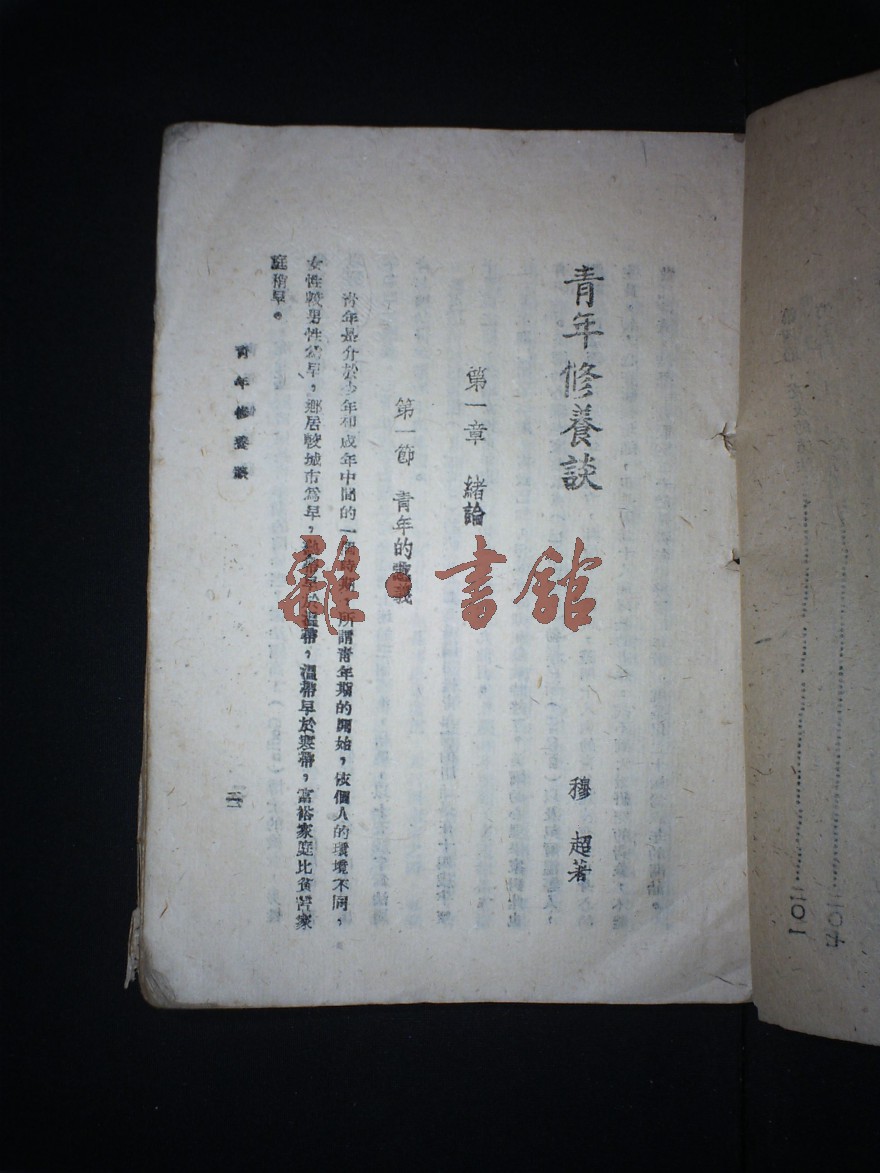 二〇七
二〇一
青年修養談
穆 超著
第一章 緒論
第一節 青年的意義
青年是介於少年和成年中間的一個時期，所謂青年期的開始，依個人的環境不同，
女性較男性為早，鄉居較城市為早，熱帶早於溫帶，溫帶早於寒帶，富裕家庭比貧苦家
庭稍早。
青年修養談
雜·書館